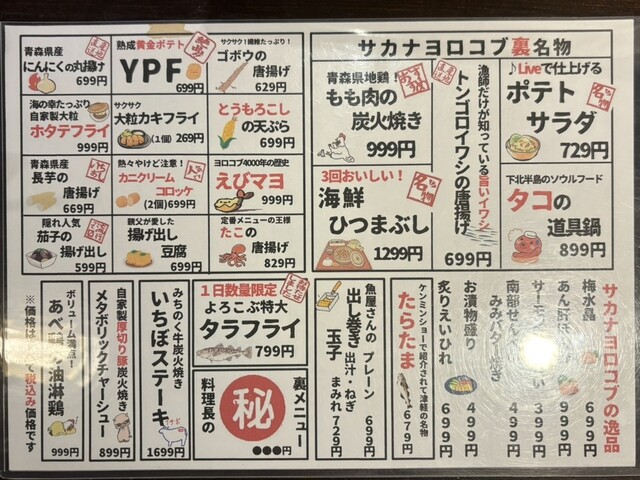 青森県産
にんにくの丸揚げ
699円
熟成黄金ポテト
YPF
699円
サクサク！繊維たっぷり！
ゴボウの
唐揚げ
629円
海の幸たっぷり
自家製大粒
ホタテフライ
999円
サクサク
大粒カキフライ
(1個) 269円
とうもろこし
の天ぷら
699円
青森県産
長芋の
唐揚げ
669円
熱々やけど注意！
カニクリーム
コロッケ
(2個)699円
ヨロコブ4000年の歴史
えびマヨ
999円
隠れ人気
茄子の
揚げ出し
599円
親父が愛した
揚げ出し
豆腐
699円
定番メニューの王様
たこの
唐揚げ
829円
サカナヨロコブ裏名物
青森県地鶏！
もも肉の
炭火焼き
999円
3回おいしい！
名物
海鮮
ひつまぶし
1299円
漁師だけが知っている旨いイワシ
トンゴロイワシの唐揚げ
699円
♪Liveで仕上げる
名物
ポテト
サラダ
729円
下北半島のソウルフード
タコの
道具鍋
899円
サカナヨロコブの逸品
梅水晶
699円
あん肝
999円
サーモン
399円
南部せん
みみバター
499円
お漬物盛り
699円
炙りえいひれ
499円
ケンミンショーで紹介されて津軽の名物
たらたま
679円
魚屋さんの
出し巻き
玉子
プレーン
699円
出汁・ねぎ
まみれ
729円
1日数量限定
よろこぶ特大
タラフライ
799円
裏メニュー
料理長の
秘
●●●円
みちのく牛炭火焼き
いちぼステーキ
1699円
自家製厚切り豚炭火焼き
メタボリックチャーシュー
899円
ボリューム満点！
あべ鶏の油淋鶏
999円
※価格は全て税込み価格です